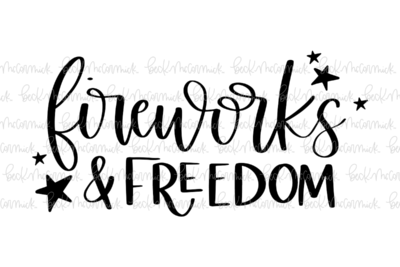 fireworks
& FREEDOM